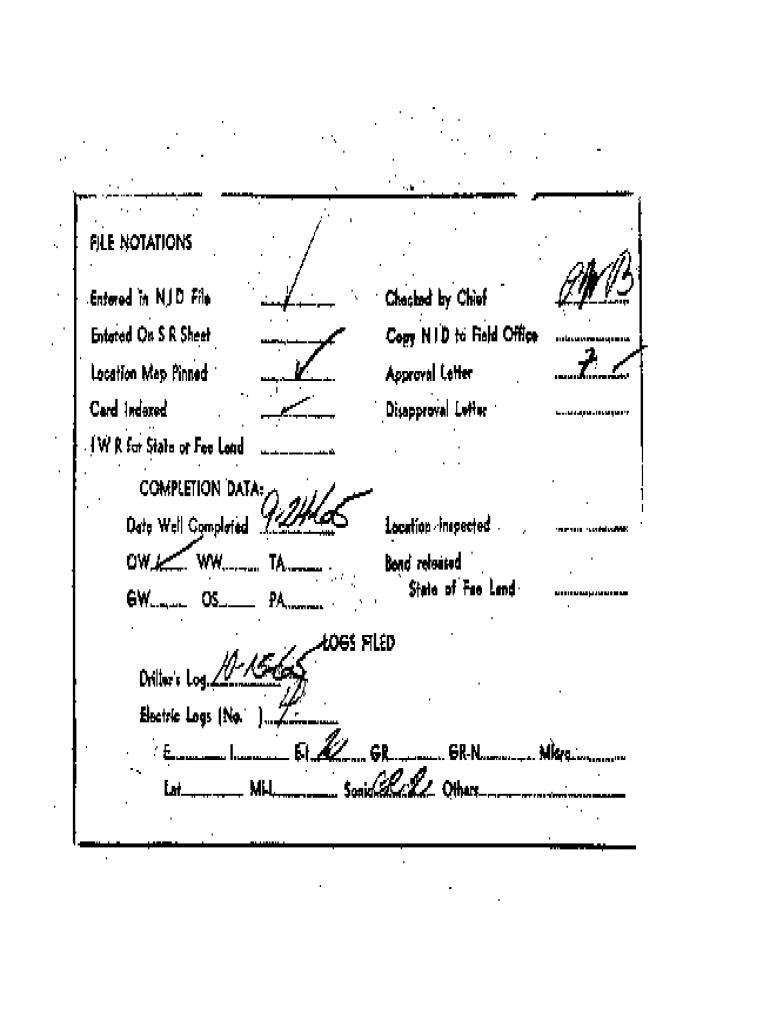 FILE NOTATIONS
Entered in N I D File
Checked by Chief PMB
Entered On S R Sheet
Copy N I D to Field Office
Location Map Pinned
Approval Letter
Card Indexed
Disapproval Letter
I W R for State or Fee Land
COMPLETION DATA:
Date Well Completed 9-24-65
Location Inspected
OW ✓ WW TA
Bond released
GW OS PA
State of Fee Land
LOGS FILED
Driller's Log 10-15-65
Electric Logs (No. )
E I E-I GR GR-N Micro
Lat Mi-L Sonic Others